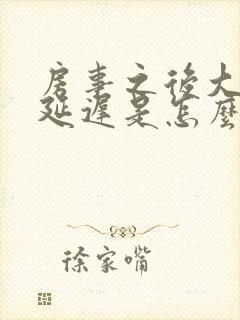 房事之後大
延遲是怎麼
徐家嘴